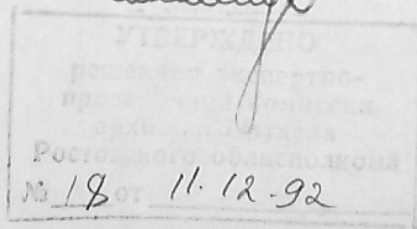 УТВЕРЖДЕНО
решением экспертно-
проверочной комиссии
архивного отдела
Ростовского облисполкома
№ 18 от 11.12-92